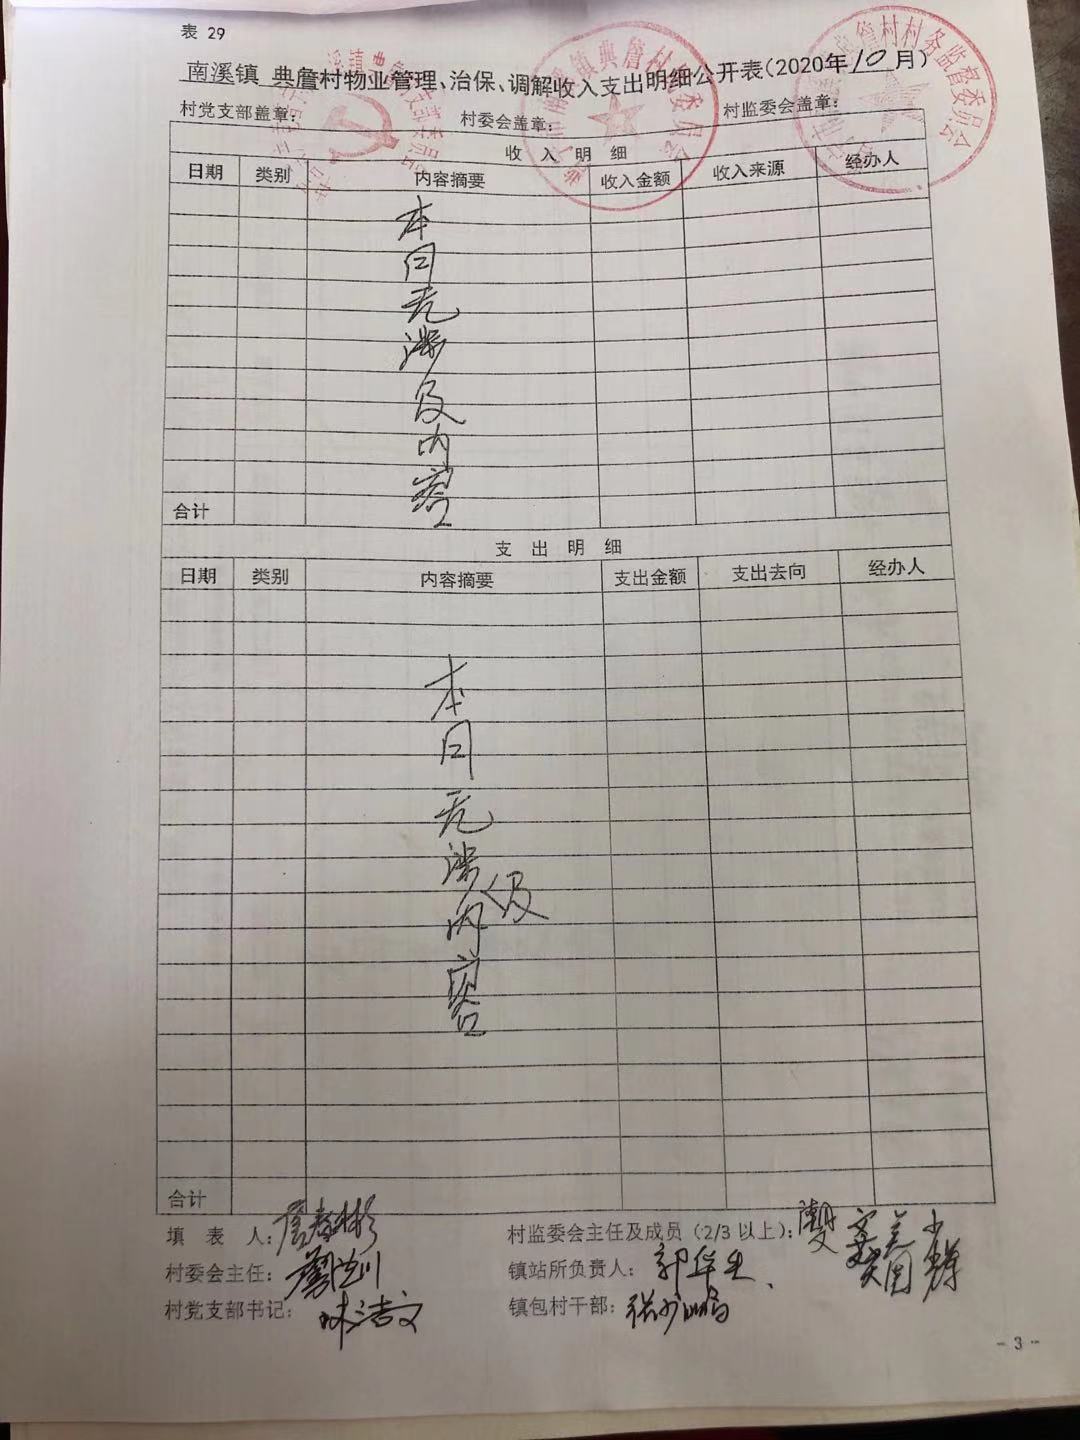 表 29
南溪镇 典詹村物业管理、治保、调解收入支出明细公开表(2020年10月)
村党支部盖章: 村委会盖章: 村监委会盖章:
收 入 明 细
日期 类别 内容摘要 收入金额 收入来源 经办人
本月无涉及内容
合计
支 出 明 细
日期 类别 内容摘要 支出金额 支出去向 经办人
本月无涉及内容
合计
填 表 人: 村监委会主任及成员(2/3 以上):
村委会主任: 镇站所负责人:
村党支部书记: 林浩文 镇包村干部:
- 3 -